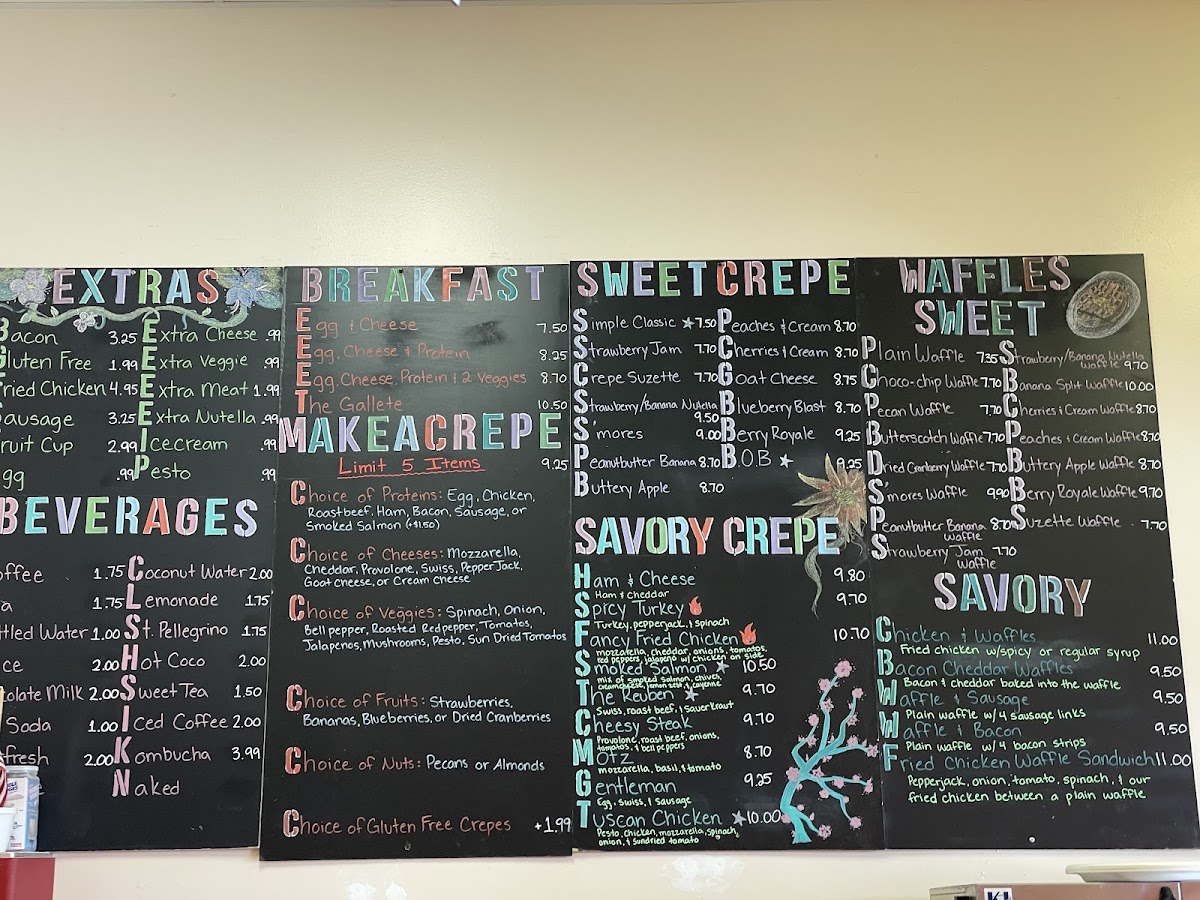 EXTRAS
Bacon 3.25
Gluten Free 1.99
Fried Chicken 4.95
Sausage 3.25
Fruit Cup 2.99
Egg .99
Extra Cheese .99
Extra Veggie .99
Extra Meat 1.99
Extra Nutella .99
Icecream .99
Pesto .99
BEVERAGES
offee 1.75
a 1.75
ttled Water 1.00
ce 2.00
olate Milk 2.00
Soda 1.00
fresh 2.00
Coconut Water 2.00
Lemonade 1.75
St. Pellegrino 1.75
Hot Coco 2.00
Sweet Tea 1.50
Iced Coffee 2.00
Kombucha 3.99
Naked
BREAKFAST
Egg & Cheese 7.50
Egg, Cheese & Protein 8.25
Egg, Cheese, Protein & 2 Veggies 8.70
The Gallete 10.50
MAKEACREPE
Limit 5 Items 9.25
Choice of Proteins: Egg, Chicken,
Roastbeef, Ham, Bacon, Sausage, or
Smoked Salmon (+1.50)
Choice of Cheeses: Mozzarella,
Cheddar, Provolone, Swiss, Pepper Jack,
Goat cheese, or Cream cheese
Choice of Veggies: Spinach, Onion,
Bell pepper, Roasted Red pepper, Tomatos,
Jalapenos, Mushrooms, Pesto, Sun Dried Tomatos
Choice of Fruits: Strawberries,
Bananas, Blueberries, or Dried Cranberries
Choice of Nuts: Pecans or Almonds
Choice of Gluten Free Crepes +1.99
SWEETCREPE
Simple Classic 7.50
Strawberry Jam 7.70
Crepe Suzette 7.70
Strawberry/Banana Nutella
9.50
S'mores 9.00
Peanutbutter Banana 8.70
Buttery Apple 8.70
Peaches & Cream 8.70
Cherries & Cream 8.70
Goat Cheese 8.75
Blueberry Blast 8.70
Berry Royale 9.25
B.O.B 9.25
SAVORY CREPE
Ham & Cheese 9.80
Ham & cheddar
Spicy Turkey 9.70
Turkey, pepperjack, & spinach
Fancy Fried Chicken 10.70
mozzarella, cheddar, onions, tomatos,
red peppers, jalapeno w/ chicken on side
Smoked Salmon 10.50
mix of smoked salmon, chives,
creamcheese, lemon zest, & cayenne
The Reuben 9.70
Swiss, roast beef, & sauerkraut
Cheesy Steak 9.70
Provolone, roast beef, onions,
tomatos, & bell peppers
Motz 8.70
mozzarella, basil, & tomato
Gentleman 9.25
Egg, swiss, & sausage
Tuscan Chicken 10.00
Pesto, chicken, mozzarella, spinach,
onion, & sundried tomato
WAFFLES
SWEET
Plain Waffle 7.35
Choco-chip Waffle 7.70
Pecan Waffle 7.70
Butterscotch Waffle 7.70
Dried Cranberry Waffle 7.70
S'mores Waffle 9.90
Peanutbutter Banana 8.70
Waffle
Strawberry Jam 7.70
Waffle
Strawberry/Banana Nutella
Waffle 9.70
Banana Split Waffle 10.00
Cherries & Cream Waffle 8.70
Peaches & Cream Waffle 8.70
Buttery Apple Waffle 8.70
Berry Royale Waffle 9.70
Suzette Waffle 7.70
SAVORY
Chicken & Waffles 11.00
Fried chicken w/spicy or regular syrup
Bacon Cheddar Waffles 9.50
Bacon & cheddar baked into the waffle
Waffle & Sausage 9.50
Plain waffle w/ 4 sausage links
Waffle & Bacon 9.50
Plain waffle w/ 4 bacon strips
Fried Chicken Waffle Sandwich 11.00
Pepperjack, onion, tomato, spinach, & our
fried chicken between a plain waffle